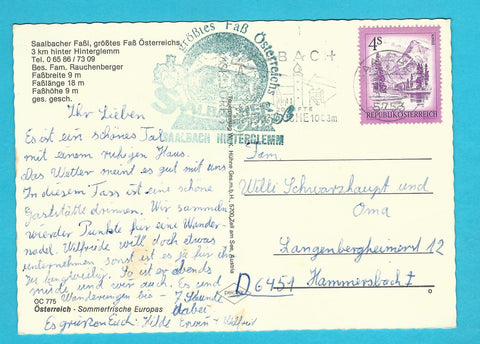 Saalbacher Faßl, größtes Faß Österreichs,
3 km hinter Hinterglemm
Tel. 0 65 86 / 73 09
Bes. Fam. Rauchenberger
Faßbreite 9 m
Faßlänge 18 m
Faßhöhe 9 m
ges. gesch.
Ihr Lieben
Es ist ein schönes Tal
mit einem ruhigen Haus.
Das Wetter meint es gut mit uns
In diesem Fass ist eine schöne
Gaststätte drinnen. Wir sammeln
wieder Punkte für eine Wander-
nadel. Wilfriede will doch etwas
unternehmen sonst ist es ja für ihn
zu langweilig. So ist er abends
müde und wir auch. Es sind
Wanderungen bis - 7 Stunden
dabei
Es grüßen Euch: Hilde Erwin + Wilfried
OC 775
Österreich - Sommerfrische Europas
größtes Faß Österreichs
SAALBACH HINTERGLEMM
BACH
1003m
5753
4S
REPUBLIK ÖSTERREICH
Hühne Ges.m.b.H., 5700 Zell am See, Austria
Fam.
Willi Schwarzhaupt und
Oma
Langenbergheimerst 12
D 6451 Hammersbach 1